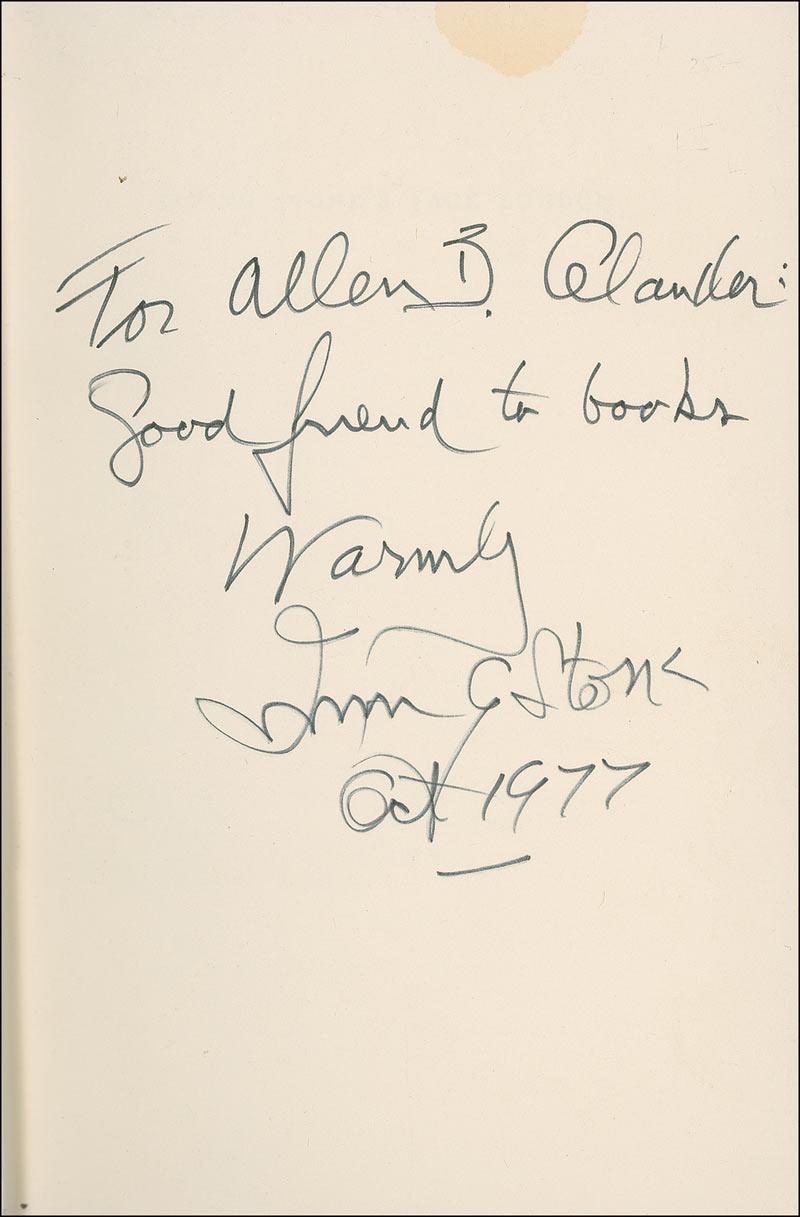 For Allen B. Olander:
Good friend to books
Warmly
Irving Stone
Oct 1977